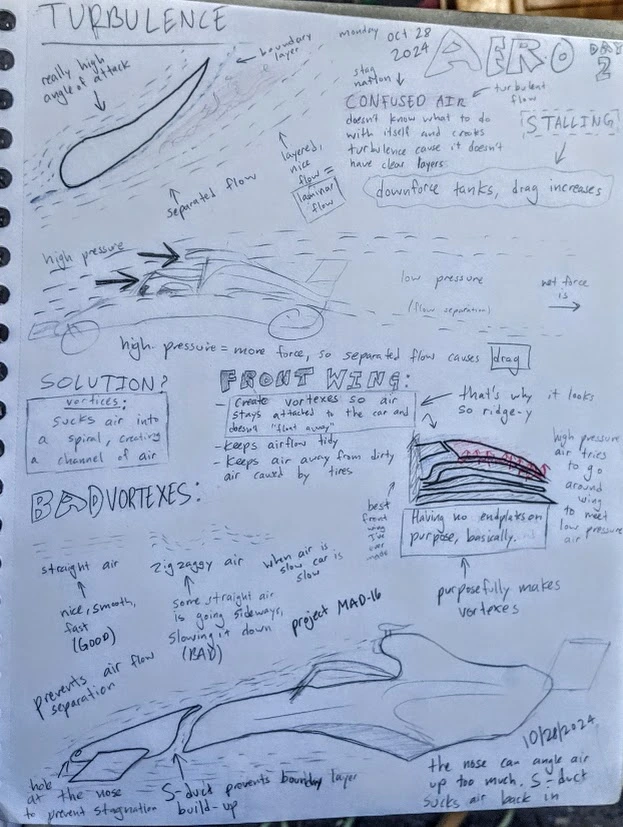 TURBULENCE
monday
oct 28
2024
AERO
DAY
2
really high
angle of attack
boundary
layer
stag
nation
turbulent
flow
CONFUSED AIR
doesn't know what to do
with itself and creates
turbulence cause it doesn't
have clear layers.
STALLING
downforce tanks, drag increases
separated flow
layered,
nice
flow =
laminar
flow
high pressure
low pressure
(flow separation)
net force
is
high pressure = more force, so separated flow causes drag
SOLUTION?
vortices:
sucks air into
a spiral, creating
a channel of air
FRONT WING:
- Create vortexes so air
stays attached to the car and
doesn't "float away"
- Keeps airflow tidy
- Keeps air away from dirty
air caused by tires
that's why it looks
so ridge-y
high pressure
air tries
to go
around
wing
to meet
low pressure
air
best
front
wing
I've
ever
made
Having no endplates on
purpose, basically.
purposefully makes
vortexes
BAD VORTEXES:
straight air
nice, smooth,
fast
(GOOD)
zig zaggy air
some straight air
is going sideways,
slowing it down
(BAD)
when air is
slow car is
slow
project MAD-16
prevents air flow
separation
hole
at the nose
to prevent stagnation
S-duct prevents boundary layer
build-up
10/28/2024
the nose can angle air
up too much. S-duct
sucks air back in